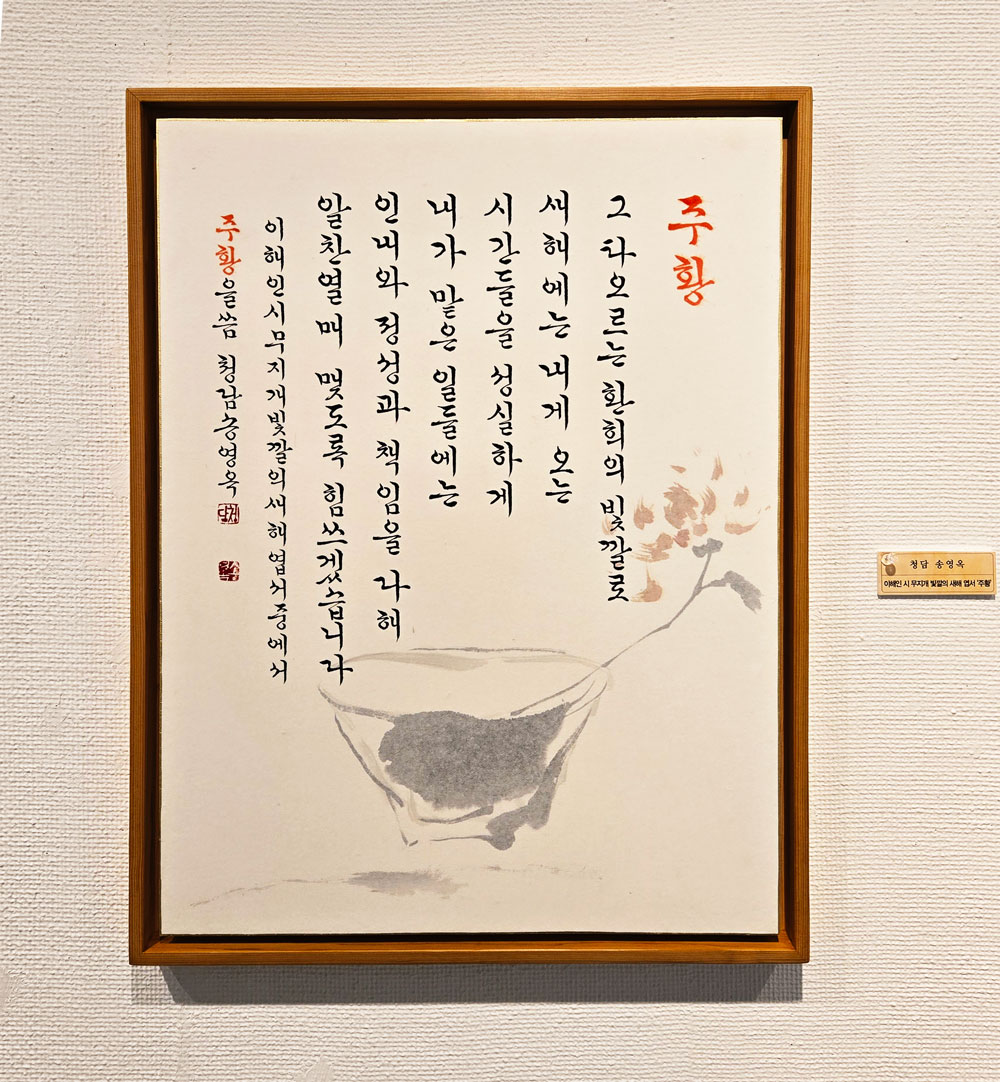 주황
그 타오르는 환희의 빛깔로
새해에는 내게 오는
시간들을 성실하게
내가 맡은 일들에는
인내와 정성과 책임을 다해
알찬 열매 맺도록 힘쓰겠습니다
이해인 시 무지개 빛깔의 새해 엽서 중에서
주황을 씀 청담 송영옥
청담 송영옥
이해인 시 무지개 빛깔의 새해 엽서 '주황'